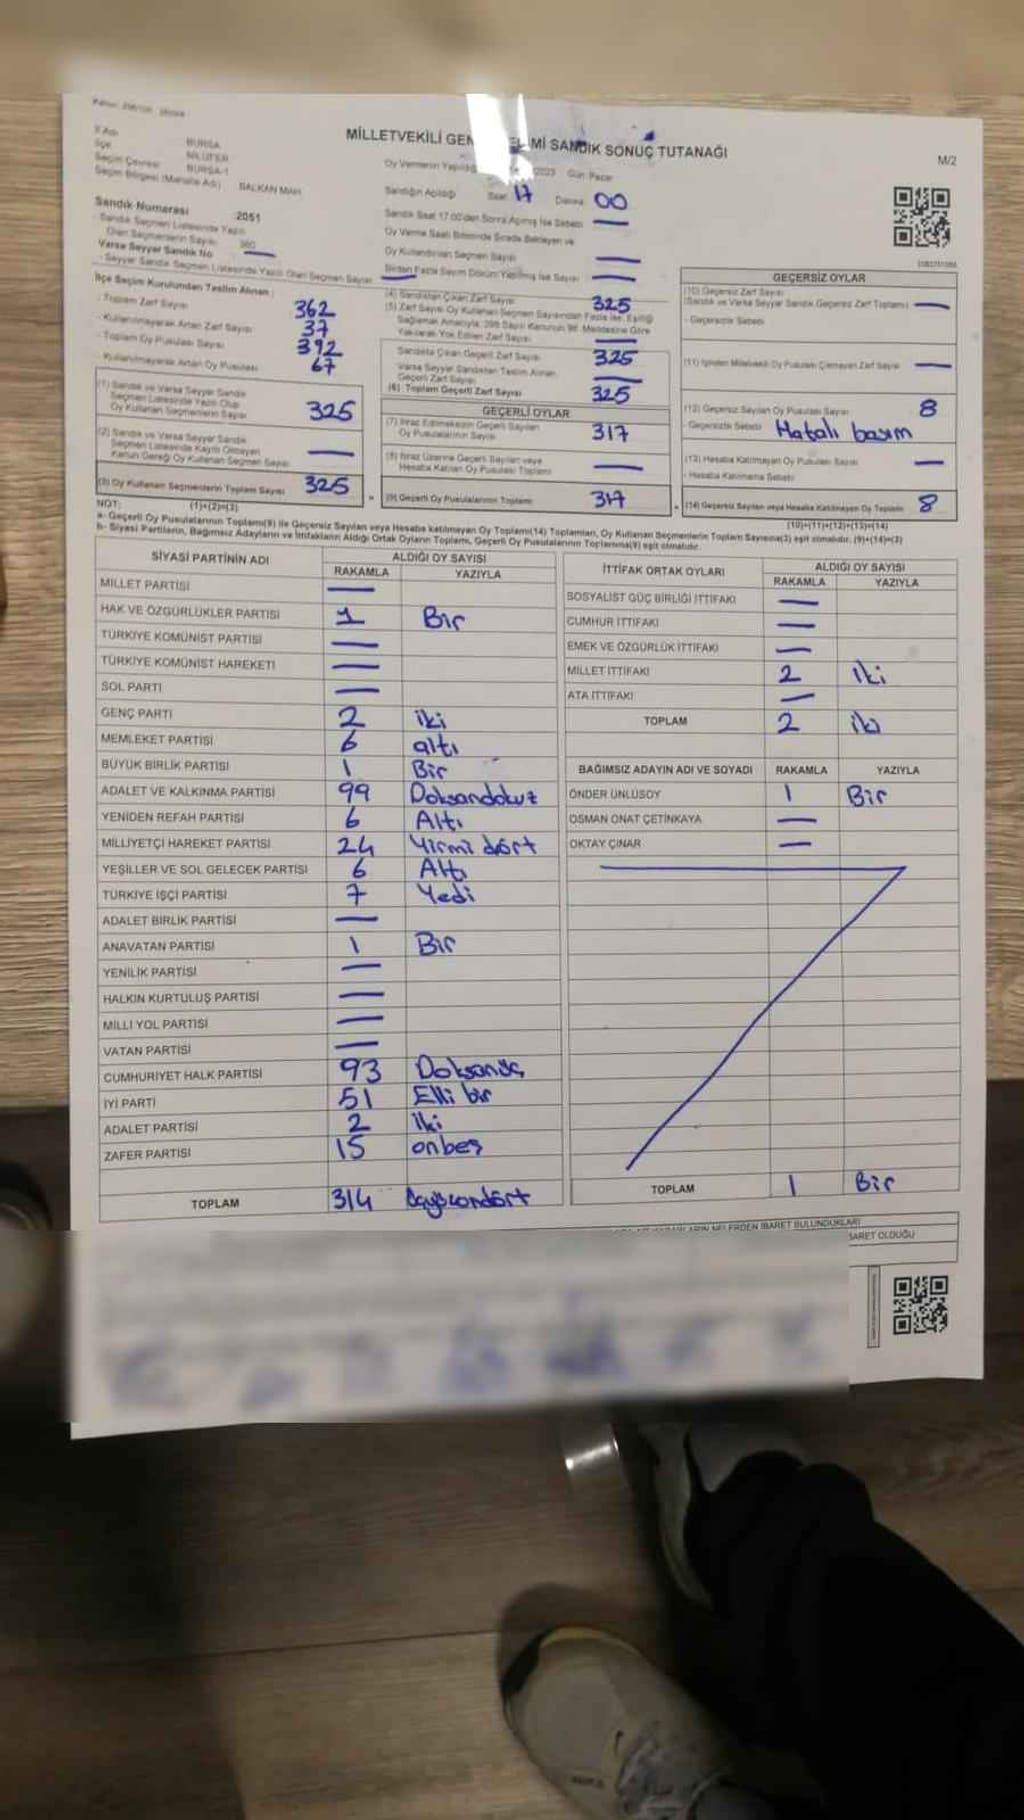 MİLLETVEKİLİ GEN SANDIK SONUÇ TUTANAĞI
M/2
İl Adı BURSA
İlçe NİLÜFER
Seçim Çevresi BURSA-1
Seçim Bölgesi (Mahalle Adı) BALKAN MAH
Oy Vermenin Yapıldığı 2023 Gün Pazar
Sandığın Açılışı Saat 17 Dakika 00
Sandık Numarası :2051
Sandık Seçmen Listesinde Yazılı
Olan Seçmenlerin Sayısı
Varsa Seyyar Sandık No —
Seyyar Sandık Seçmen Listesinde Yazılı Olan Seçmen Sayısı —
Sandık Saat 17.00'den Sonra Açılmış İse Sebebi —
Oy Verme Saati Bitiminde Sırada Bekleyen ve
Oy Kullandırılan Seçmen Sayısı —
Birden Fazla Sayım Döküm Yapılmış İse Sayısı —
İlçe Seçim Kurulundan Teslim Alınan:
Toplam Zarf Sayısı 362
Kullanılmayarak Artan Zarf Sayısı 37
Toplam Oy Pusulası Sayısı 392
Kullanılmayarak Artan Oy Pusulası 67
(1) Sandık ve Varsa Seyyar Sandık
Seçmen Listesinde Yazılı Olup
Oy Kullanan Seçmenlerin Sayısı 325
(2) Sandık ve Varsa Seyyar Sandık
Seçmen Listesinde Kayıtlı Olmayan
Kanun Gereği Oy Kullanan Seçmen Sayısı —
(3) Oy Kullanan Seçmenlerin Toplam Sayısı 325
(1)+(2)=(3)
(4) Sandıktan Çıkan Zarf Sayısı 325
(5) Zarf Sayısı Oy Kullanan Seçmen Sayısından Fazla İse, Eşitliği
Sağlamak Amacıyla, 298 Sayılı Kanunun 98. Maddesine Göre
Yakılarak Yok Edilen Zarf Sayısı —
Sandıkta Çıkan Geçerli Zarf Sayısı 325
Varsa Seyyar Sandıktan Teslim Alınan
Geçerli Zarf Sayısı —
(6) Toplam Geçerli Zarf Sayısı 325
GEÇERLİ OYLAR
(7) İtiraz Edilmeksizin Geçerli Sayılan
Oy Pusulalarının Sayısı 317
(8) İtiraz Üzerine Geçerli Sayılan veya
Hesaba Katılan Oy Pusulası Toplamı —
(9) Geçerli Oy Pusulalarının Toplamı 317
GEÇERSİZ OYLAR
(10) Geçersiz Zarf Sayısı
(Sandık ve Varsa Seyyar Sandık Geçersiz Zarf Toplamı) —
Geçersizlik Sebebi
(11) İçinden Milletvekili Oy Pusulası Çıkmayan Zarf Sayısı —
(12) Geçersiz Sayılan Oy Pusulası Sayısı 8
Geçersizlik Sebebi Hatalı basım
(13) Hesaba Katılmayan Oy Pusulası Sayısı —
Hesaba Katılmama Sebebi
(14) Geçersiz Sayılan veya Hesaba Katılmayan Oy Toplamı 8
(10)+(11)+(12)+(13)=(14)
NOT:
a- Geçerli Oy Pusulalarının Toplamı(9) ile Geçersiz Sayılan veya Hesaba katılmayan Oy Toplamı(14) Toplamları, Oy Kullanan Seçmenlerin Toplam Sayısına(3) eşit olmalıdır. (9)+(14)=(3)
b- Siyasi Partilerin, Bağımsız Adayların ve İttifakların Aldığı Ortak Oyların Toplamı, Geçerli Oy Pusulalarının Toplamına(9) eşit olmalıdır.
SİYASİ PARTİNİN ADI ALDIĞI OY SAYISI
RAKAMLA YAZIYLA
MİLLET PARTİSİ —
HAK VE ÖZGÜRLÜKLER PARTİSİ 1 Bir
TÜRKİYE KOMÜNİST PARTİSİ —
TÜRKİYE KOMÜNİST HAREKETİ —
SOL PARTİ —
GENÇ PARTİ 2 iki
MEMLEKET PARTİSİ 6 altı
BÜYÜK BİRLİK PARTİSİ 1 Bir
ADALET VE KALKINMA PARTİSİ 99 Doksandokuz
YENİDEN REFAH PARTİSİ 6 Altı
MİLLİYETÇİ HAREKET PARTİSİ 24 Yirmi dört
YEŞİLLER VE SOL GELECEK PARTİSİ 6 Altı
TÜRKİYE İŞÇİ PARTİSİ 7 Yedi
ADALET BİRLİK PARTİSİ —
ANAVATAN PARTİSİ 1 Bir
YENİLİK PARTİSİ —
HALKIN KURTULUŞ PARTİSİ —
MİLLİ YOL PARTİSİ —
VATAN PARTİSİ —
CUMHURİYET HALK PARTİSİ 93 Doksanüç
İYİ PARTİ 51 Elli bir
ADALET PARTİSİ 2 iki
ZAFER PARTİSİ 15 onbeş
TOPLAM 314 üçyüzondört
İTTİFAK ORTAK OYLARI ALDIĞI OY SAYISI
RAKAMLA YAZIYLA
SOSYALİST GÜÇ BİRLİĞİ İTTİFAKI —
CUMHUR İTTİFAKI —
EMEK VE ÖZGÜRLÜK İTTİFAKI —
MİLLET İTTİFAKI 2 iki
ATA İTTİFAKI —
TOPLAM 2 iki
BAĞIMSIZ ADAYIN ADI VE SOYADI RAKAMLA YAZIYLA
ÖNDER ÜNLÜSOY 1 Bir
OSMAN ONAT ÇETİNKAYA —
OKTAY ÇINAR —
TOPLAM 1 Bir
NELERDEN İBARET BULUNDUKLARI
OLDUĞU